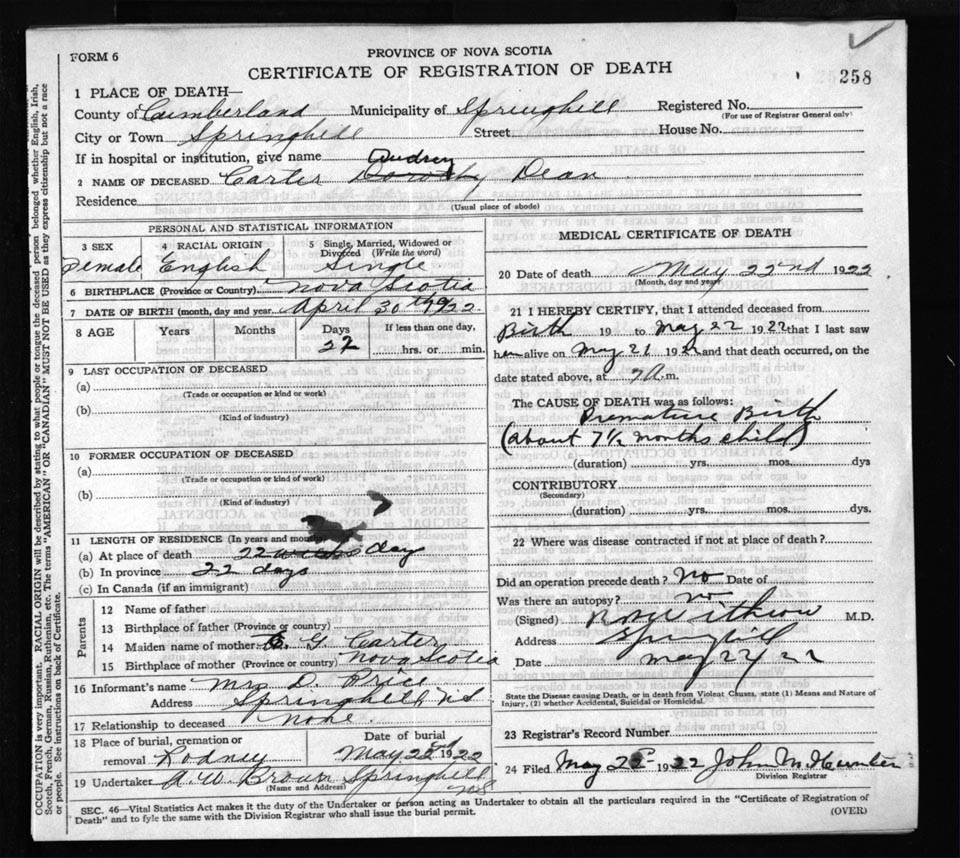 FORM 6
PROVINCE OF NOVA SCOTIA
CERTIFICATE OF REGISTRATION OF DEATH
258
1 PLACE OF DEATH—
County of Cumberland Municipality of Springhill Registered No.
(For use of Registrar General only)
City or Town Springhill Street House No.
If in hospital or institution, give name
Audrey
2 NAME OF DECEASED. Carter Dorothy Dean
Residence
(Usual place of abode)
PERSONAL AND STATISTICAL INFORMATION
3 SEX
4 RACIAL ORIGIN
5 Single, Married, Widowed or Divorced (Write the word)
Female English Single
6 BIRTHPLACE (Province or Country) Nova Scotia
7 DATE OF BIRTH (month, day and year) April 30th 1922
8 AGE Years Months Days If less than one day,
22 hrs. or min.
9 LAST OCCUPATION OF DECEASED
(a)
(Trade or occupation or kind or work)
(b)
(Kind of industry)
10 FORMER OCCUPATION OF DECEASED
(a)
(Trade or occupation or kind of work)
(b)
(Kind of industry)
11 LENGTH OF RESIDENCE (In years and months)
(a) At place of death 22 day
(b) In province 22 days
(c) In Canada (if an immigrant)
Parents
12 Name of father
13 Birthplace of father (Province or country)
14 Maiden name of mother G Carter
15 Birthplace of mother (Province or country) Nova Scotia
16 Informant's name Mrs D. Price
Address Springhill, NS
17 Relationship to deceased none
18 Place of burial, cremation or removal Rodney
Date of burial
May 22nd 1922
19 Undertaker A. W. Brown Springhill NS
(Name and Address)
MEDICAL CERTIFICATE OF DEATH
20 Date of death May 22nd 1922
(Month, day and year)
21 I HEREBY CERTIFY, that I attended deceased from
Birth 19 to May 22 1922 that I last saw
h alive on May 21 1922 and that death occurred, on the
date stated above, at 7 A. m.
The CAUSE OF DEATH was as follows:
Premature Birth
(about 7½ months child)
(duration) yrs. mos. dys
CONTRIBUTORY
(Secondary)
(duration) yrs. mos. dys.
22 Where was disease contracted if not at place of death?
Did an operation precede death? No Date of
Was there an autopsy? No
(Signed) Withrow M.D.
Address Springhill
Date May 22/22
State the Disease causing Death, or in death from Violent Causes, state (1) Means and Nature of
Injury, (2) whether Accidental, Suicidal or Homicidal.
23 Registrar's Record Number
24 Filed May 22 1922 John M
Division Registrar
SEC. 46—Vital Statistics Act makes it the duty of the Undertaker or person acting as Undertaker to obtain all the particulars required in the "Certificate of Registration of
Death" and to fyle the same with the Division Registrar who shall issue the burial permit.
(OVER)
OCCUPATION is very important. RACIAL ORIGIN will be described by stating to what people or tongue the deceased person belonged whether English, Irish,
Scotch, French, German, Russian, Ruthenian, etc. The terms "AMERICAN" OR "CANADIAN" MUST NOT BE USED as they express citizenship but not a race
or people. See instructions on back of Certificate.